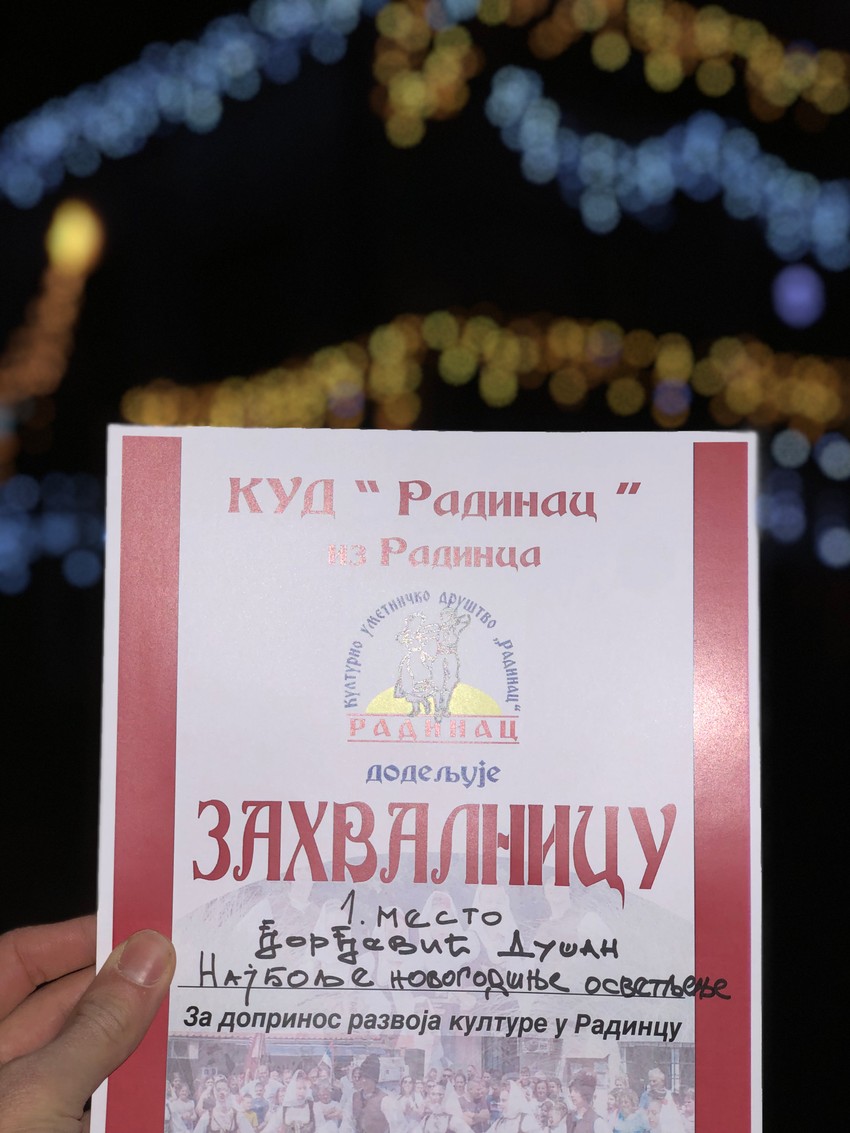 КУД " Радинац "
из Радинца
Културно уметничко друштво „Радинац“
РАДИНАЦ
додељује
ЗАХВАЛНИЦУ
1. место
Ђорђевић Душан
Најбоље новогодишње осветљење
За допринос развоја културе у Радинцу